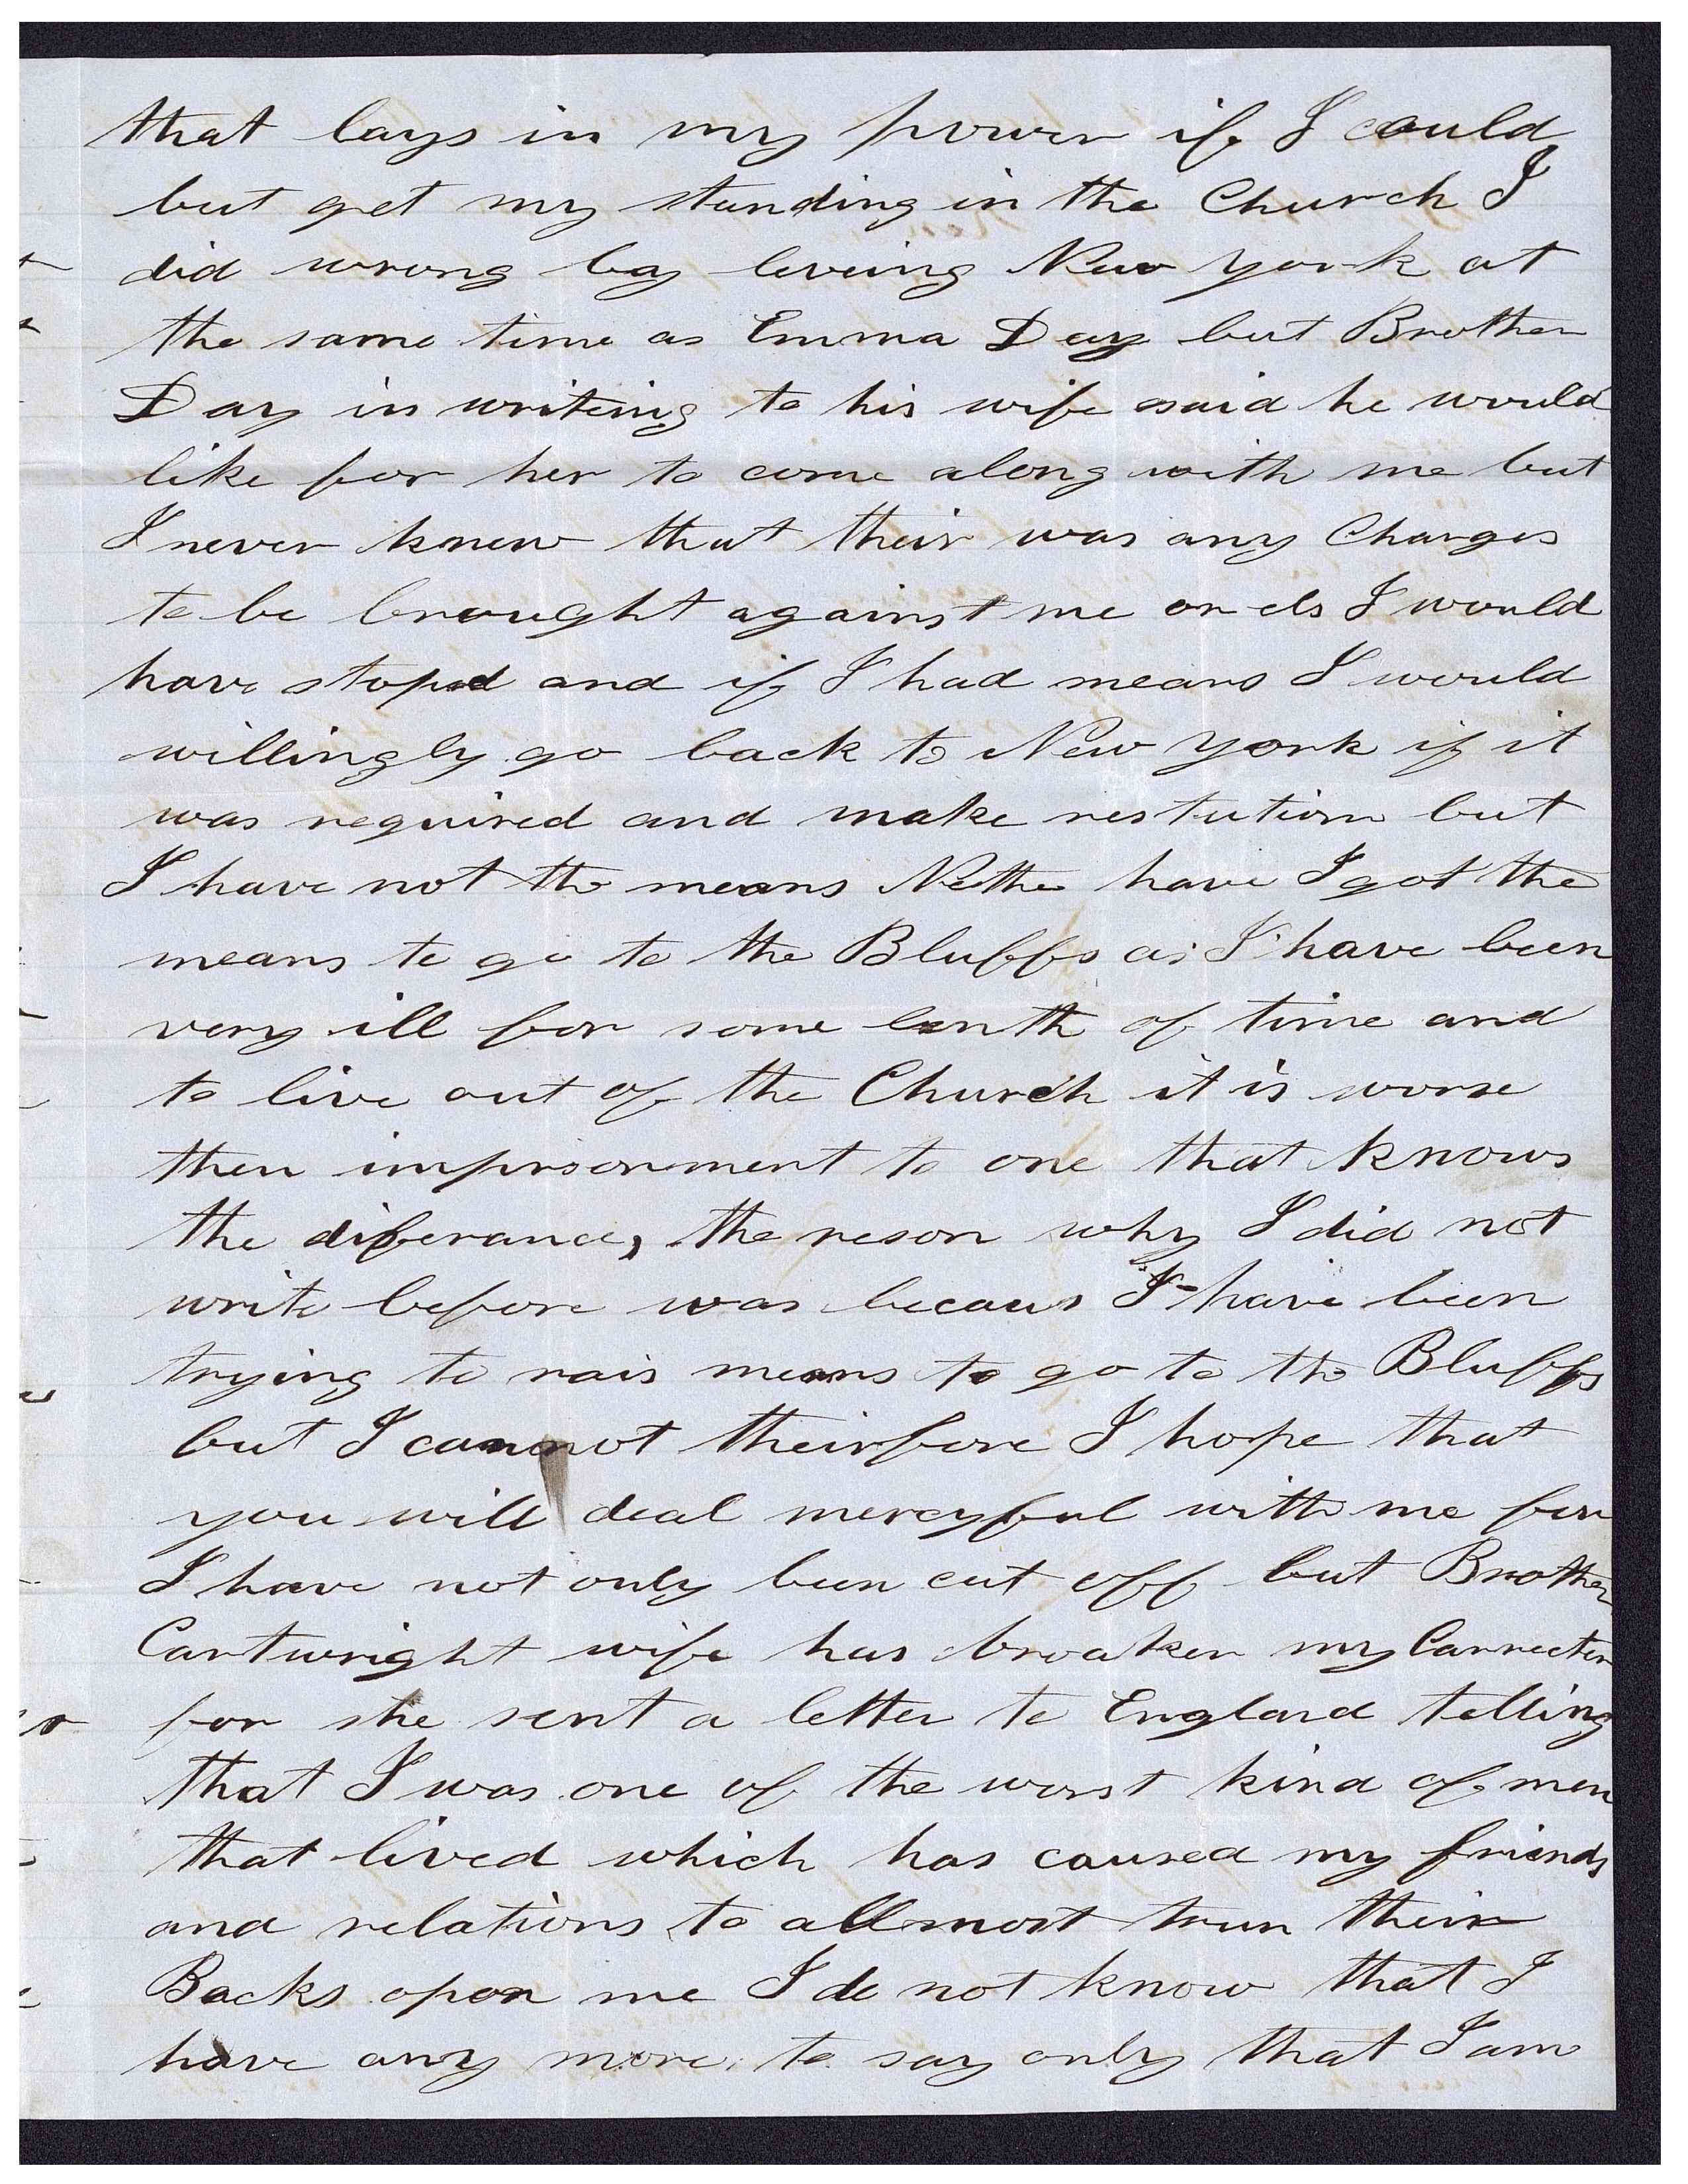 that lays in my power if I could
but get my standing in the Church I
did wrong by leveing New york at
the same time as Emma Day but Brother
Day in writeing to his wife said he would
like for her to come along with me but
I never knew that their was any Charges
to be brought against me or els I would
have stoped and if I had means I would
willingly go back to New york if it
was required and make restution but
I have not the means Neithe have I got the
means to go to the Bluffs as I have been
very ill for some lenth of time and
to live out of the Church it is worse
then imprsonment to one that knows
the diferance, the reson why I did not
write before was becaus I have been
trying to rais means to go to the Bluffs
but I cannot theirfore I hope that
you will deal mercyful with me for
I have not only been cut off but Brother
Cartwright wife has broaken my Carrecter
for she sent a letter to England telling
that I was one of the worst kind of men
that lived which has caused my friends
and relations to allmost trun their
Backs opon me I do not know that I
have any more to say only that I am